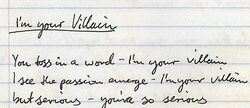 I'm your Villain
You toss in a word - I'm your villain
I see the passion emerge - I'm your villain
but serious - you're so serious